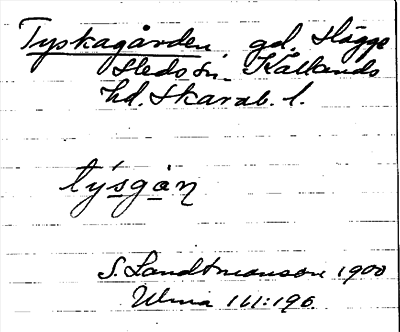 Tyskagården gd. Hägge
Sleds sn. Kållands
hd. Skarab. l.
tysgån
S. Landtmanson 1900
Ulma 111:196.